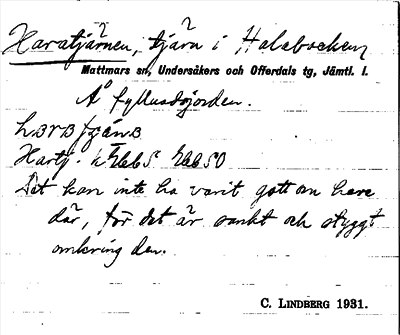 Haratjärnen, tjärn i Halabacken
Mattmars sn, Undersåkers och Offerdals tg, Jämtl. l.
Å fyllusdjorden.
Hartj.
Det kan inte ha varit gott om hare
där, för det är sankt och styggt
omkring den.
C. LINDBERG 1931.